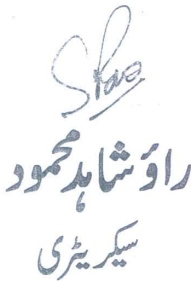 راؤ شاہد محمود
سیکریٹری